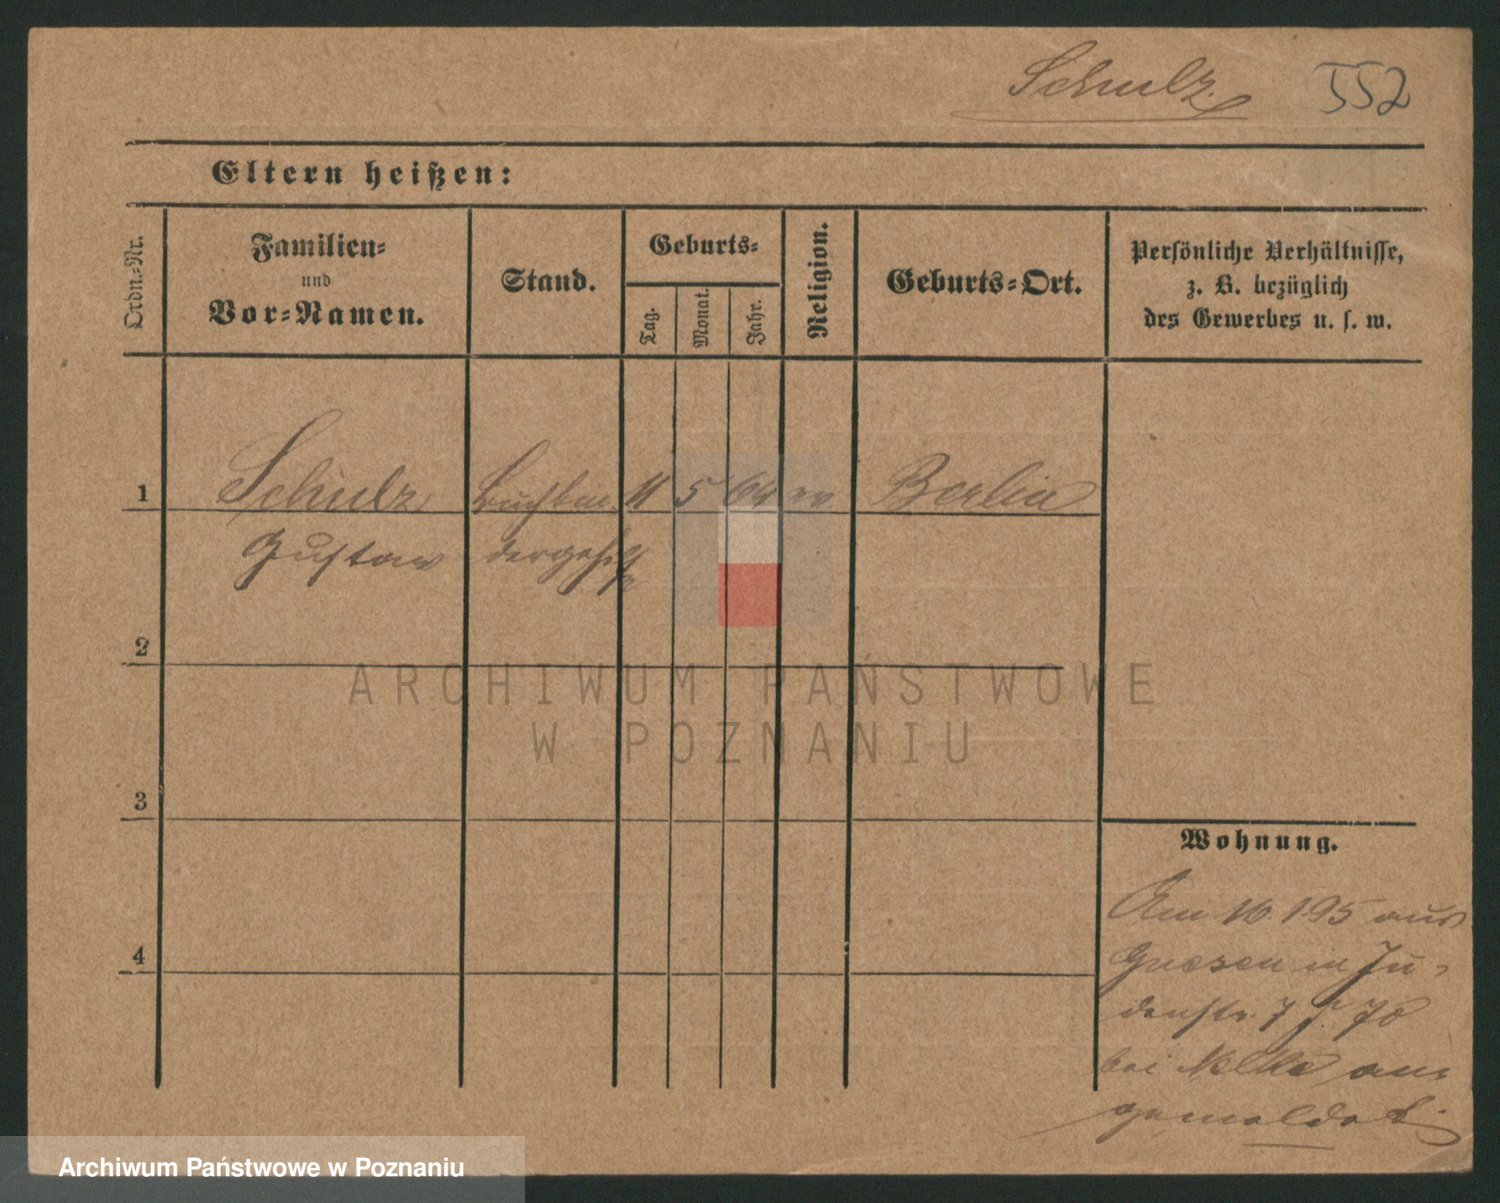 Schulz.
552
Eltern heißen:
Ordn.-Nr.
Familien-
und
Vor-Namen.
Stand.
Geburts-
Tag.
Monat.
Jahr.
Religion.
Geburts-Ort.
Persönliche Verhältnisse,
z. B. bezüglich
des Gewerbes u. s. w.
1 Schulz Buchbin 11 5 64 ev Berlin
Gustav dergehilfe
2
ARCHIWUM PAŃSTWOWE
W POZNANIU
3
Wohnung.
Am 16.1 95 aus
Gnesen in Ju-
denstr. 7
4
bei Nelke an-
gemeldet.
Archiwum Państwowe w Poznaniu